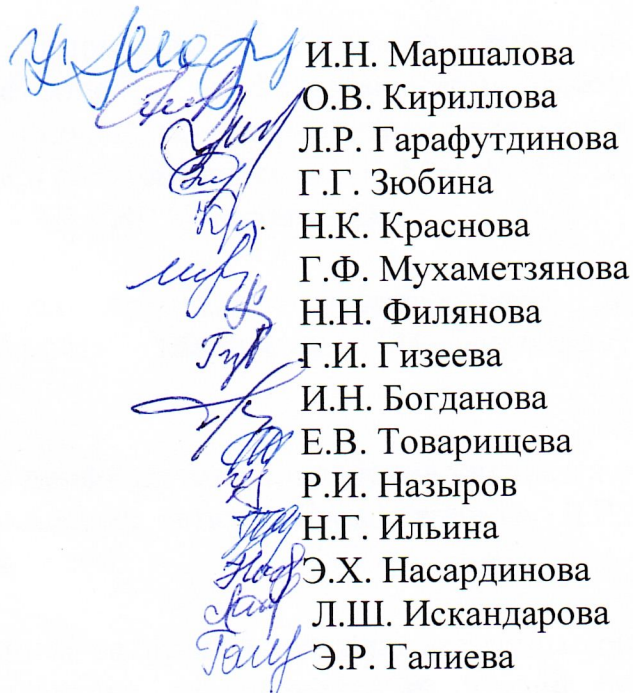 И.Н. Маршалова
О.В. Кириллова
Л.Р. Гарафутдинова
Г.Г. Зюбина
Н.К. Краснова
Г.Ф. Мухаметзянова
Н.Н. Филянова
Г.И. Гизеева
И.Н. Богданова
Е.В. Товарищева
Р.И. Назыров
Н.Г. Ильина
Э.Х. Насардинова
Л.Ш. Искандарова
Э.Р. Галиева